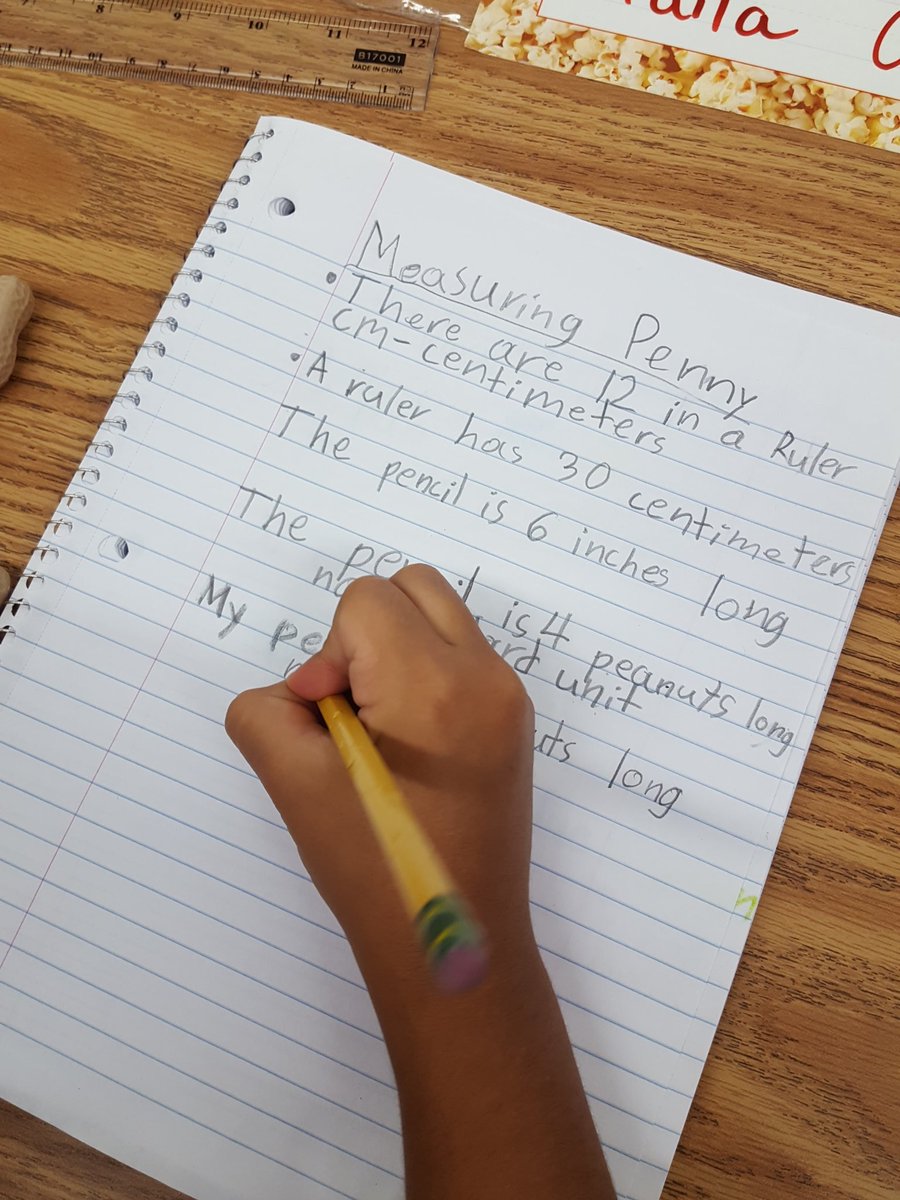 7 8 9 10 11 12
B17001
MADE IN CHINA
Measuring Penny
• There are 12 in a Ruler
cm-centimeters
• A ruler has 30 centimeters
The pencil is 6 inches long
The pencil is 4 peanuts long
unit
My long